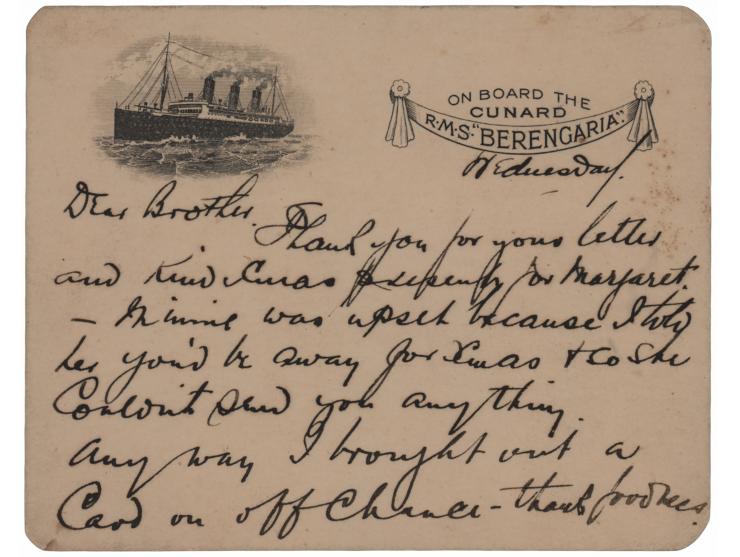 ON BOARD THE
CUNARD
R·M·S·"BERENGARIA".
Wednesday.
Dear Brother.
Thank you for your letter
and kind Xmas presents for Margaret.
– Minnie was upset because I told
her you'd be away for Xmas & so she
Couldn't send you anything.
Any way I brought out a
Card on off Chance – thank goodness.